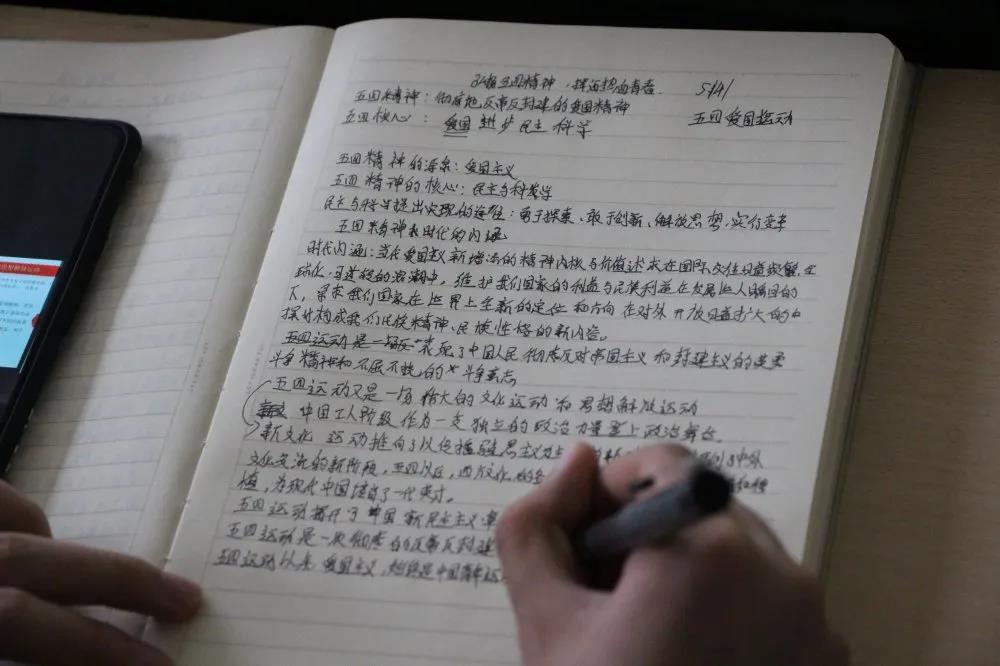 弘扬五四精神，挥洒热血青春
5/4
五四精神：彻底地反帝反封建的爱国精神
五四爱国运动
五四核心：爱国 进步 民主 科学
五四精神的源泉：爱国主义
五四精神的核心：民主与科学
民主与科学提出实现的途径：勇于探索、敢于创新、解放思想、实行变革
五四精神表时代的内涵
时代内涵：当代爱国主义新增添的精神内核与价值述求在国际交往日益频繁、全
球化，日益的浪潮中，维护我们国家的利益与民族利益在发展让人瞩目的
下，寻求我们国家在世界上全新的定位和方向 在对外开放日益扩大的中
探讨构成我们民族精神、民族性格的新内容。
五四运动是一场 表现了中国人民彻底反对帝国主义和封建主义的英勇
斗争精神和不屈不挠的斗争意志
五四运动又是一场伟大的文化运动和思想解放运动
中国工人阶级作为一支独立的政治力量登上政治舞台
新文化运动推向了以传播马克思主义为主
文化交流的新阶段，五四以后，西方文化的
植，为现代中国培育了一代英才。
五四运动揭开了中国新民主主义革
五四运动是一次彻底的反帝反封建
五四运动以来 爱国主义，始终是中国青年运